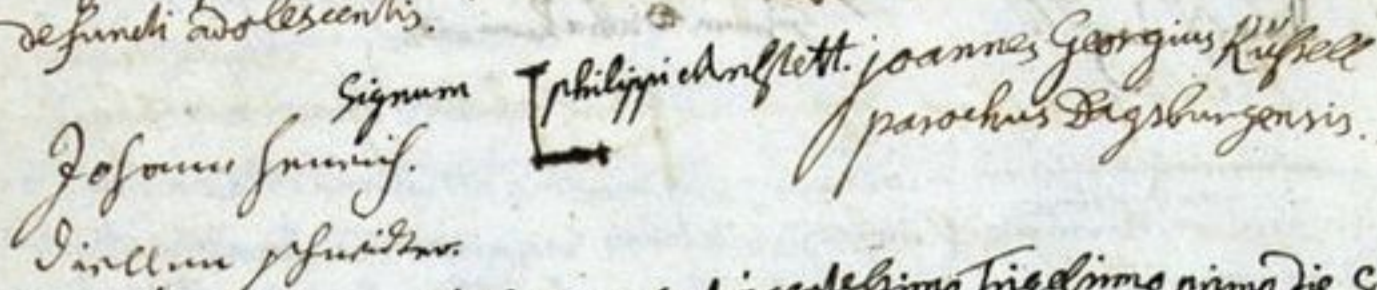 defuncti adolescentis.
Signum philippi Anstett. joannes Georgius Küssell
parochus Dagsburgensis.
Johann Henrich.
schneider.
Trigesimo primo Die